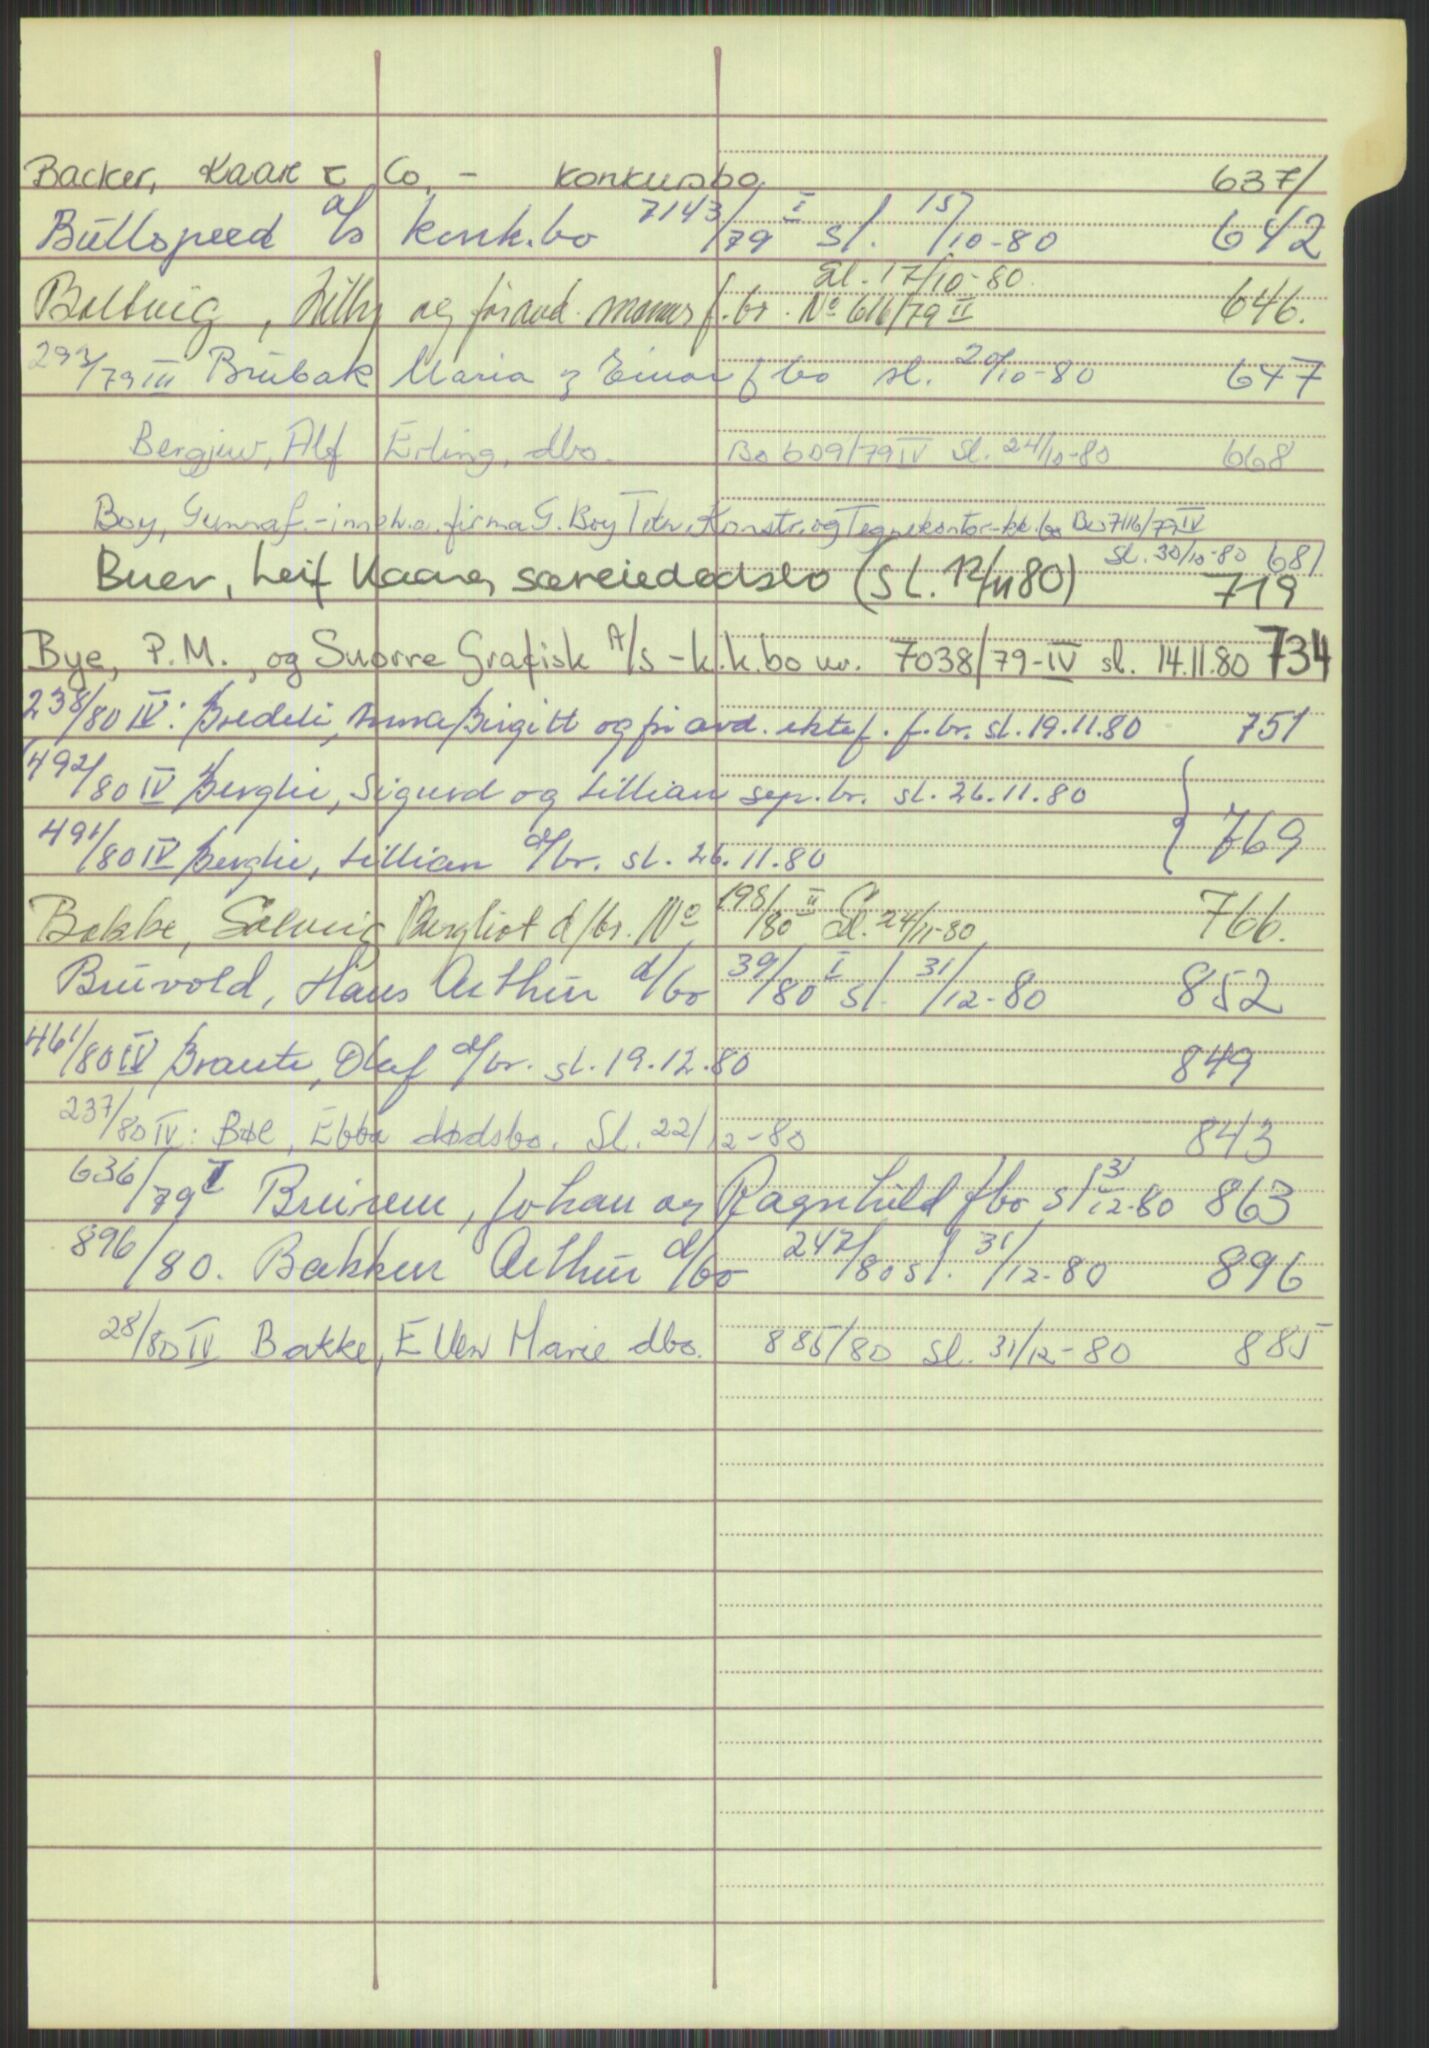 Backer, Kaare & Co. - konkursbo 637/
Bullspeed a/s konk.bo 7143/79 I sl. 15/10-80 642
sl. 17/10-80.
Boltvig, Lilly og foravd. manns f.br. No 616/79 II 646.
292/79 III Brubak Maria og Einar f bo sl. 20/10-80 647
Bergjuv, Alf Erling, dbo. Bo 609/79 IV sl. 24/10-80 668
Boy, Gunnaf.-inneh.a. firma G. Boy Tekn. Konstr. og Tegnekontor-kk.bo Bo 7116/79 IV
sl. 30/10-80 681
Buer, Leif Kaare, særeiedødsbo (sl. 12/11 80) 719
Bye, P.M., og Snorre Grafisk A/s - k.k.bo nr. 7038/79-IV sl. 14.11.80 734
238/80 IV: Bredeli, Anna Birgitt og foravd. ektef. f.br. sl. 19.11.80 751
492/80 IV Berglie, Sigurd og Lillian sep.br. sl. 26.11.80
491/80 IV Berglie, Lillian d/br. sl. 26.11.80 769
Bakke, Solveig Bergliot d/br. No 198/80 II sl. 24/11-80 766.
Bruvold, Hans Arthur d/bo 39/80 I sl. 31/12-80 852
461/80 IV Braute, Olaf d/br. sl. 19.12.80 849
237/80 IV: Bøe, Ebba dødsbo. Sl. 22/12-80 843
636/79 I Bruirem, Johan og Ragnhild f bo sl 31/12-80 863
896/80. Bakken Arthur d/bo 247/80 sl. 31/12-80 896
28/80 IV Bakke, Ellen Marie dbo. 885/80 sl. 31/12-80 885